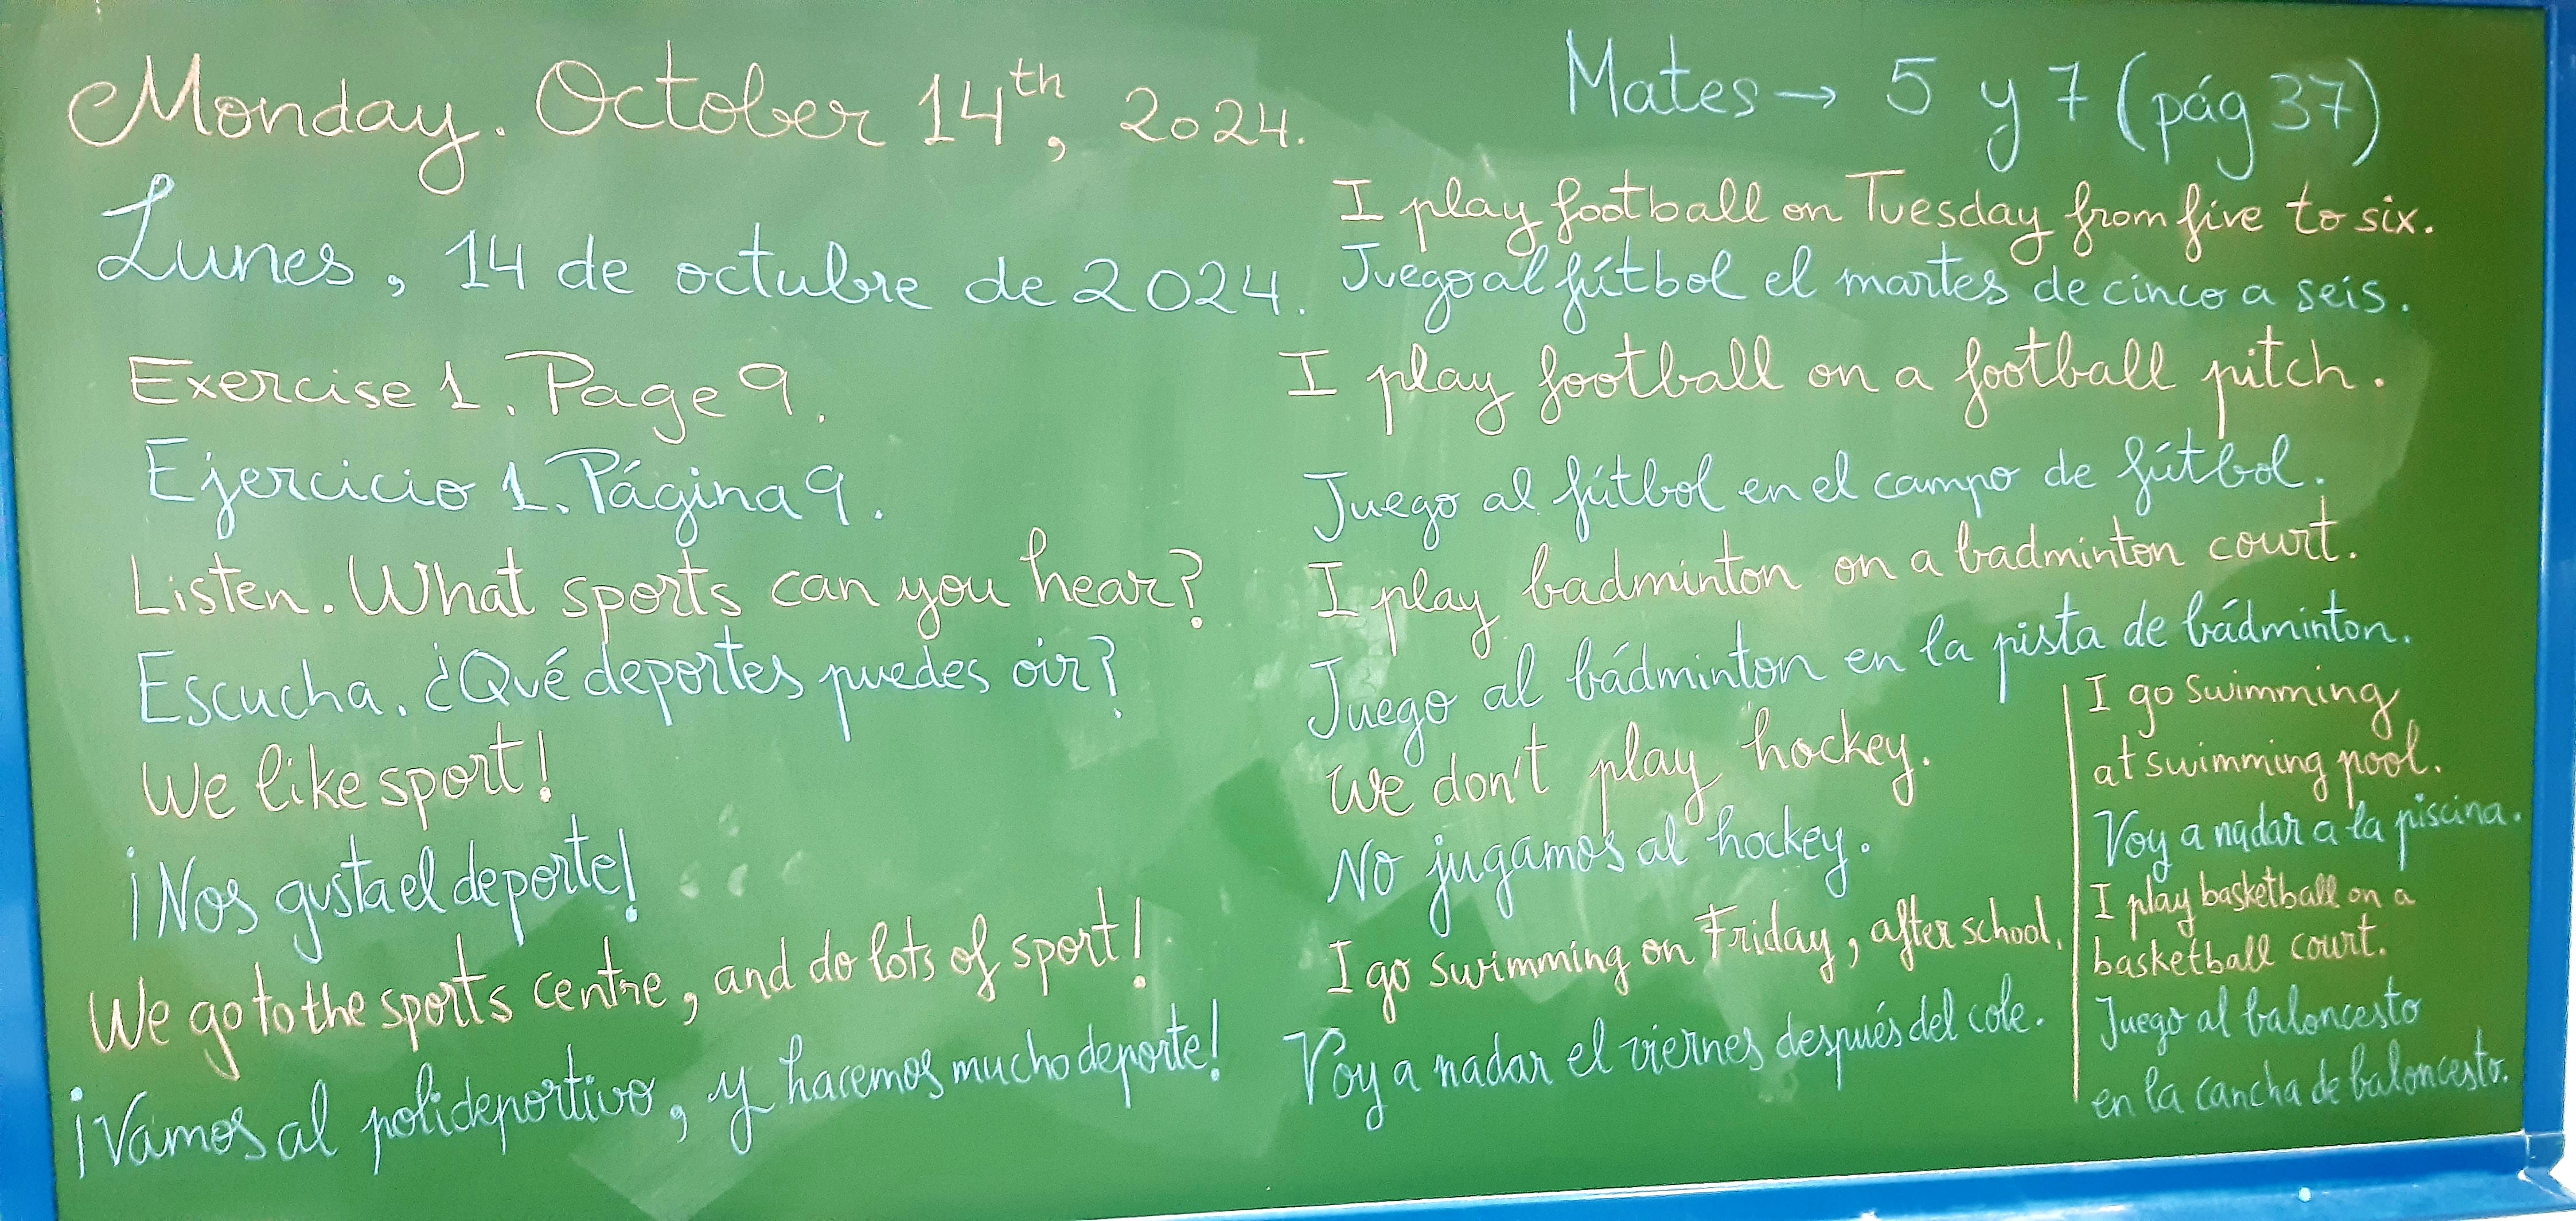 Monday. October 14th, 2024.
Lunes, 14 de octubre de 2024.
Exercise 1. Page 9.
Ejercicio 1. Página 9.
Listen. What sports can you hear?
Escucha. ¿Qué deportes puedes oir?
We like sport!
¡Nos gusta el deporte!
We go to the sports centre, and do lots of sport!
¡Vamos al polideportivo, y hacemos mucho deporte!
Mates → 5 y 7 (pág 37)
I play football on Tuesday from five to six.
Juego al fútbol el martes de cinco a seis.
I play football on a football pitch.
Juego al fútbol en el campo de fútbol.
I play badminton on a badminton court.
Juego al bádminton en la pista de bádminton.
We don't play hockey.
No jugamos al hockey.
I go swimming on Friday, after school.
Voy a nadar el viernes después del cole.
I go swimming
at swimming pool.
Voy a nadar a la piscina.
I play basketball on a
basketball court.
Juego al baloncesto
en la cancha de baloncesto.